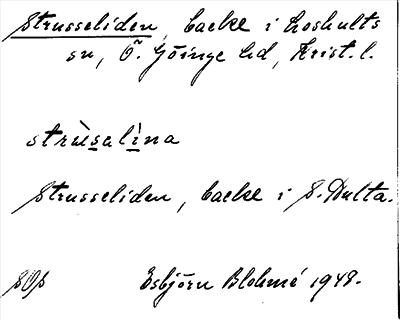 Strusseliden, backe i Loshults
sn, Ö. Göinge hd, Krist. l.
strùsalìna
Strusseliden, backe i S. Hulta.
Esbjörn Blohmé 1948.